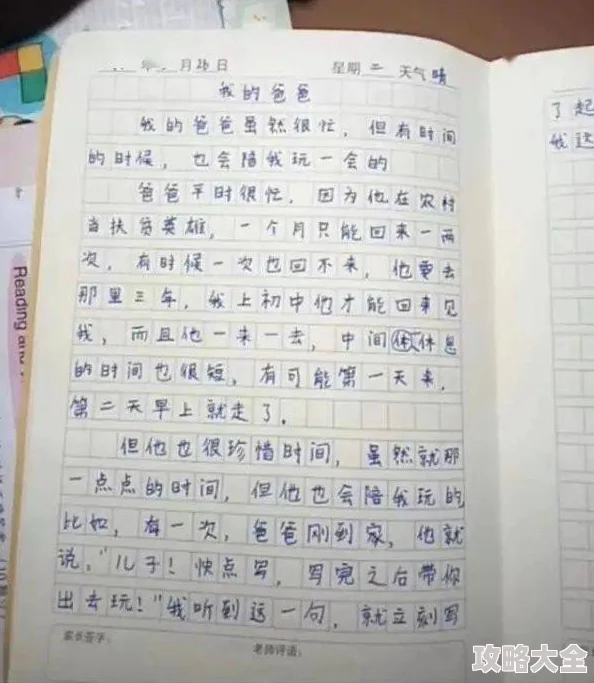 年 月26日 星期二 天气晴
我的爸爸
我的爸爸虽然很忙，但有时间
的时候，也会陪我玩一会的
爸爸平时很忙，因为他在农村
当扶贫英雄，一个月只能回来一两
次，有时候一次也回不来，他要去
那里三年，我上初中他才能回来见
我，而且他一来一去，中间休息
的时间也很短，有可能第一天来，
第二天早上就走了．
但他也很珍惜时间，虽然就那
一点点的时间，但他也会陪我玩的
比如，有一次，爸爸刚到家，他就
说："儿子！快点写，写完之后带你
出去玩！"我听到这一句，就立刻写
家长签字：
老师评语：
了起
我这
Reading and
攻略大全